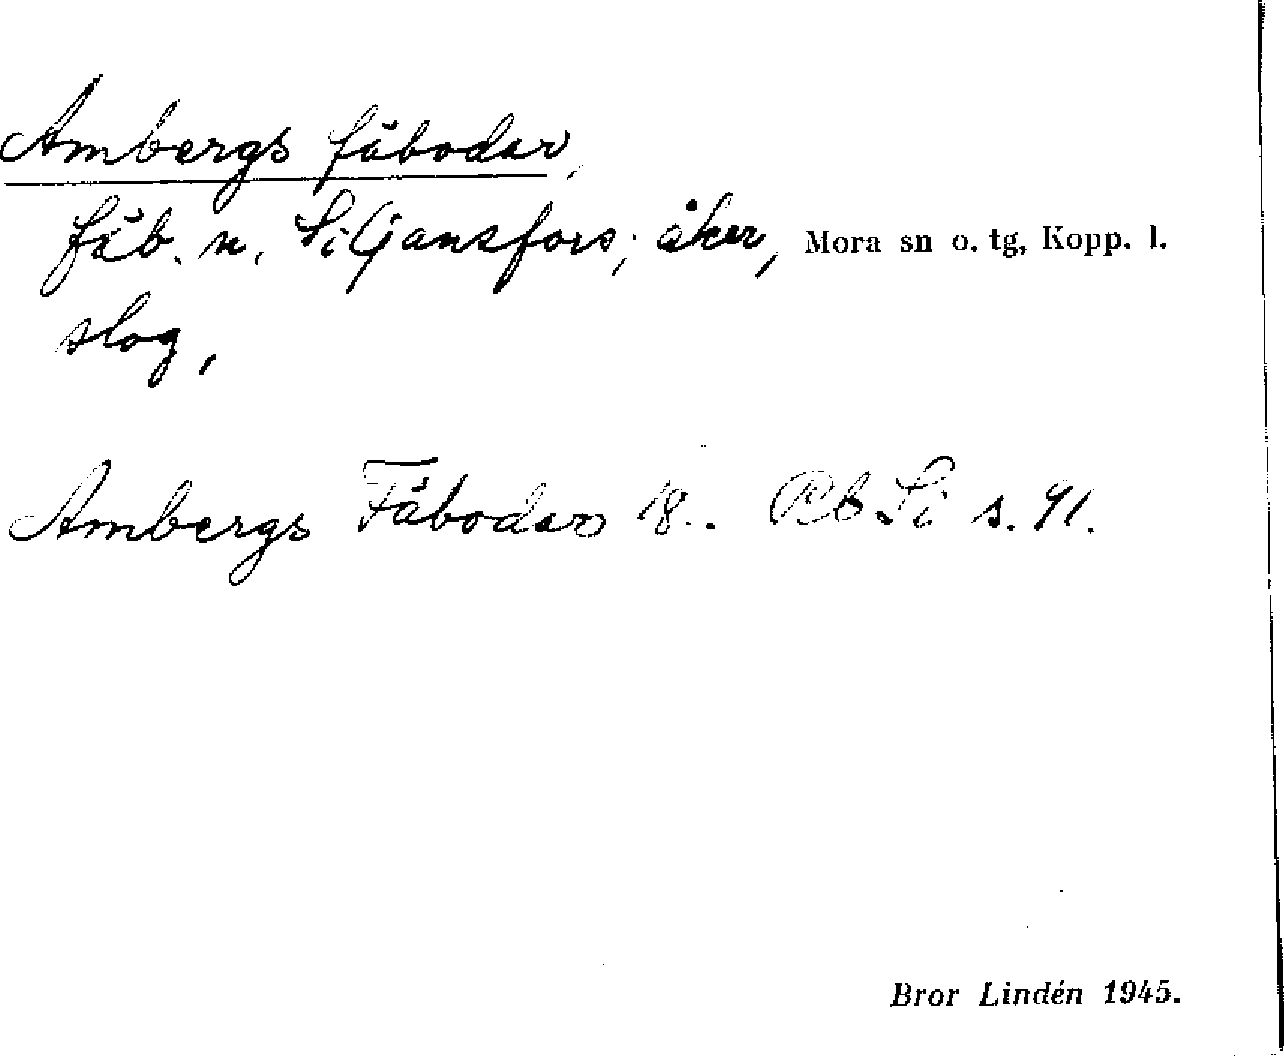 Ambergs fäbodar,
fäb. n. Siljansfors; åker, Mora sn o. tg, Kopp. l.
slog,
Ambergs Fäbodar 18.. Rb Si s. 91.
Bror Lindén 1945.